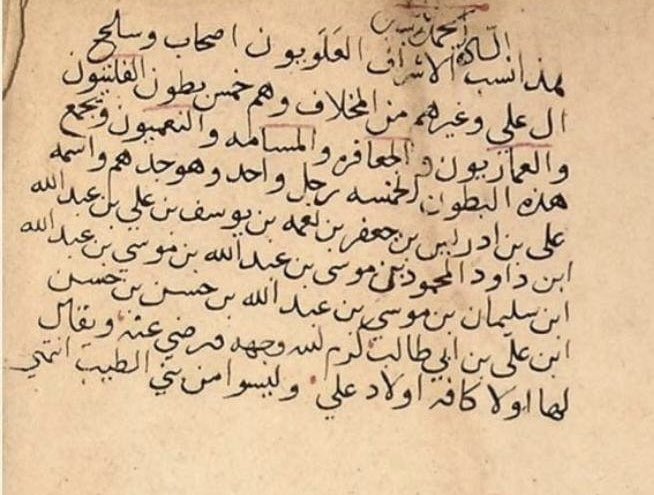 الحمد لله
هذا نسب السادة الاشراف العلويون اصحاب وساع
ال علي وغيرهم من المخلاف وهم خمس بطون الفلقيون
والعماريون والجعافره والمسامه والنعميون ويجمع
هذه البطون الخمسه رجل واحد وهو جدهم واسمه
علي بن ادريس بن جعفر بن نعمه بن يوسف بن علي بن عبد الله
ابن داود المحمود بن موسى بن عبد الله بن موسى بن عبد الله
ابن سليمان بن موسي بن عبد الله بن حسن بن حسن
ابن علي بن ابي طالب كرم الله وجهه ورضي عنه ويقال
لها اولا كافه اولاد علي وليسوا من بني الطيب انتهى